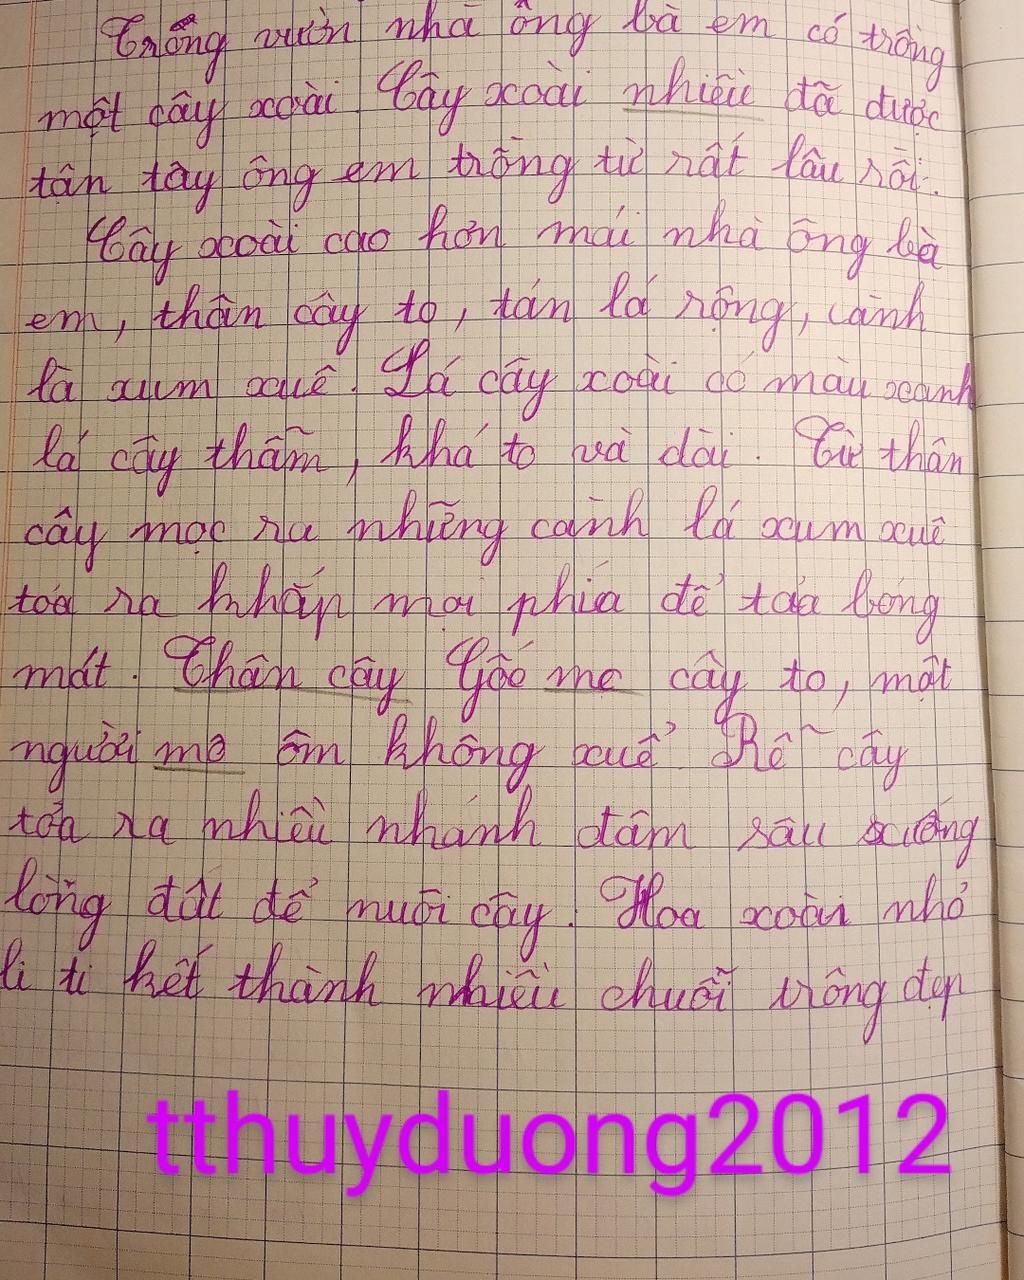 Trồng vườn nhà ông bà em có trồng
một cây xoài. Cây xoài nhiều đã được
tận tay ông em trồng từ rất lâu rồi.
Cây xoài cao hơn mái nhà ông bà
em, thân cây to, tán lá rộng, cành
là xum xuê. Lá cây xoài có màu xanh
lá cây thẫm, khá to và dài. Từ thân
cây mọc ra những cành lá xum xuê
toả ra khắp mọi phía để toả bóng
mát. Thân cây Gốc me cây to, một
người me ôm không xuể. Rễ cây
tỏa ra nhiều nhánh đâm sâu xuống
lòng đất để nuôi cây. Hoa xoài nhỏ
li ti kết thành nhiều chuỗi trông đẹp
tthuyduong2012